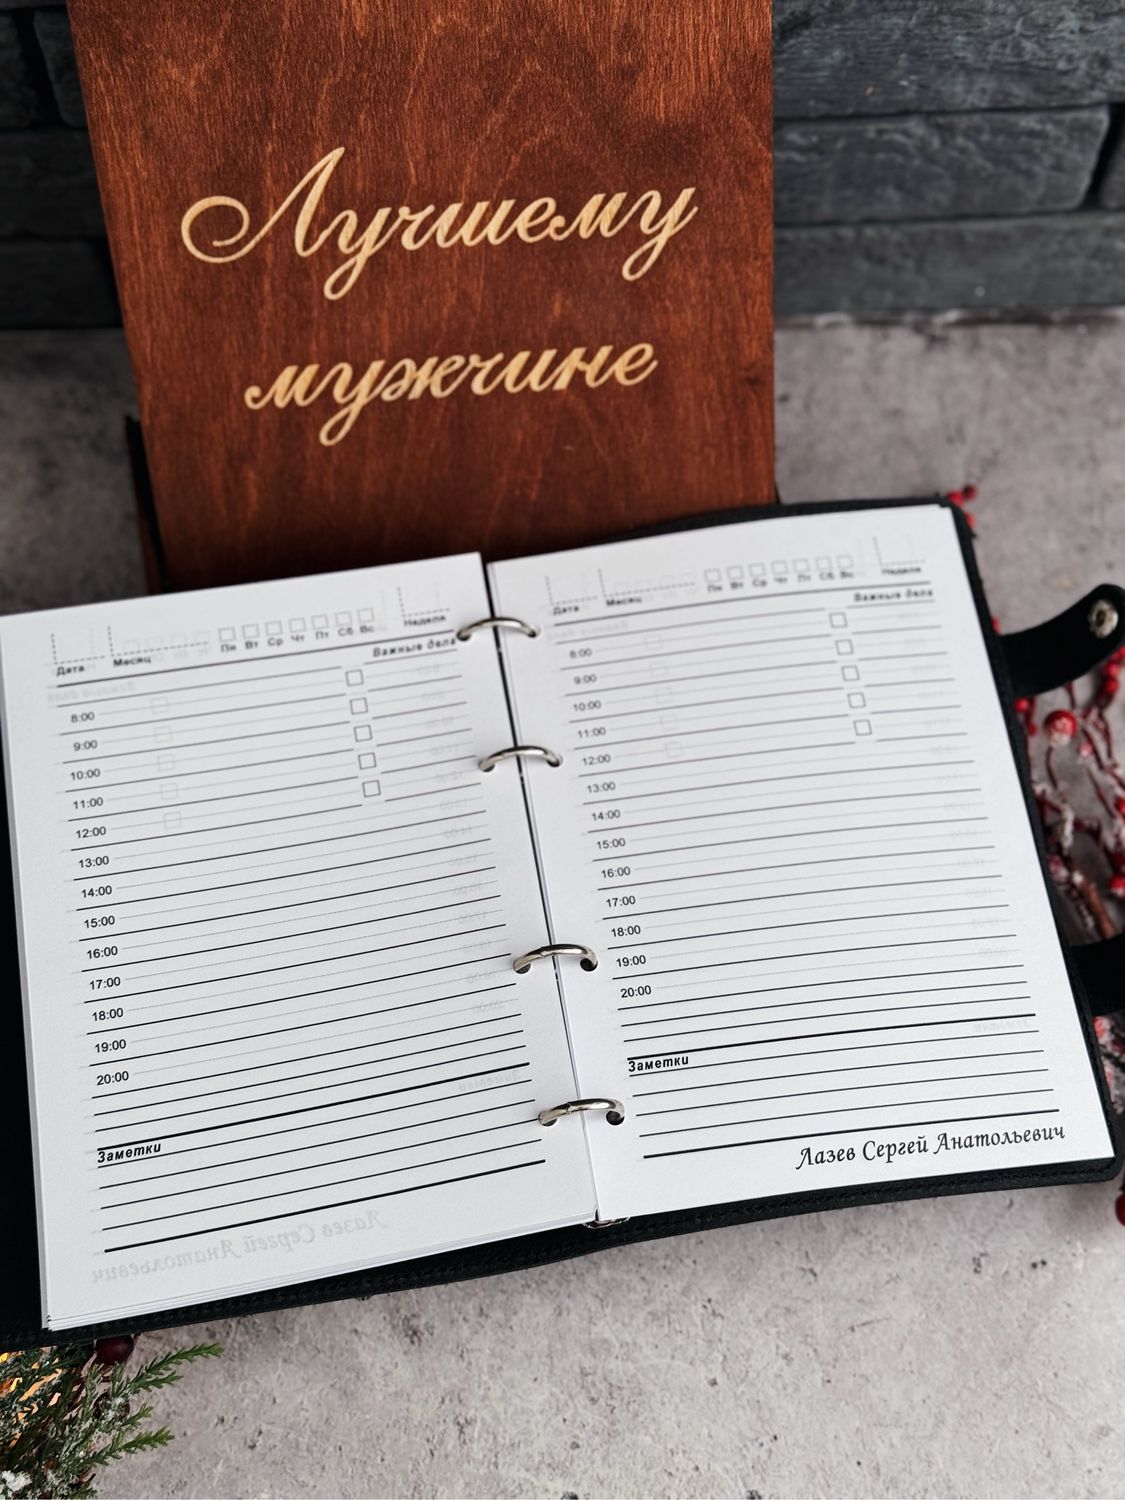 Лучшему
мужчине
Дата Месяц Пн Вт Ср Чт Пт Сб Вс Неделя
Важные дела
8:00
9:00
10:00
11:00
12:00
13:00
14:00
15:00
16:00
17:00
18:00
19:00
20:00
Заметки
Дата Месяц Пн Вт Ср Чт Пт Сб Вс Неделя
Важные дела
8:00
9:00
10:00
11:00
12:00
13:00
14:00
15:00
16:00
17:00
18:00
19:00
20:00
Заметки
Лазев Сергей Анатольевич